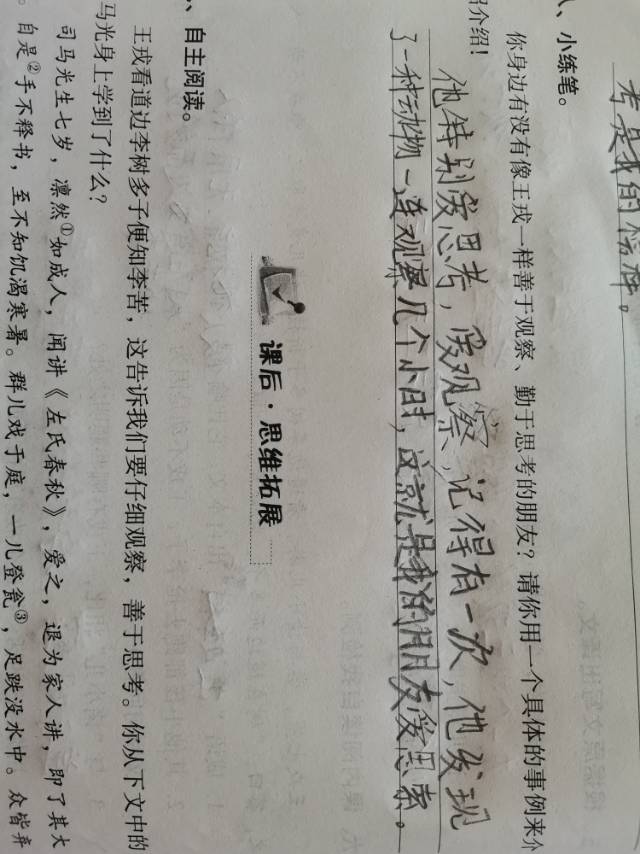 考是我的榜样。
、小练笔。
你身边有没有像王戎一样善于观察、勤于思考的朋友？请你用一个具体的事例来介
绍介绍！
他特别爱思考，爱观察，记得有一次，他发现
了一种动物一连观察几个小时，这就是我的朋友爱思索。
课后·思维拓展
、自主阅读。
王戎看道边李树多子便知李苦，这告诉我们要仔细观察，善于思考。你从下文中的
马光身上学到了什么？
司马光生七岁，凛然①如成人，闻讲《左氏春秋》，爱之，退为家人讲，即了其大
。自是②手不释书，至不知饥渴寒暑。群儿戏于庭，一儿登瓮③，足跌没水中。众皆弃